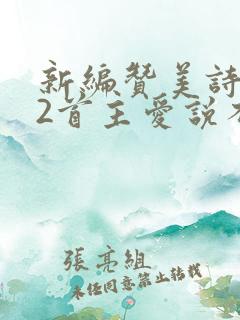 新編贊美詩
2首主愛說不
張亮組
未经同意禁止转载